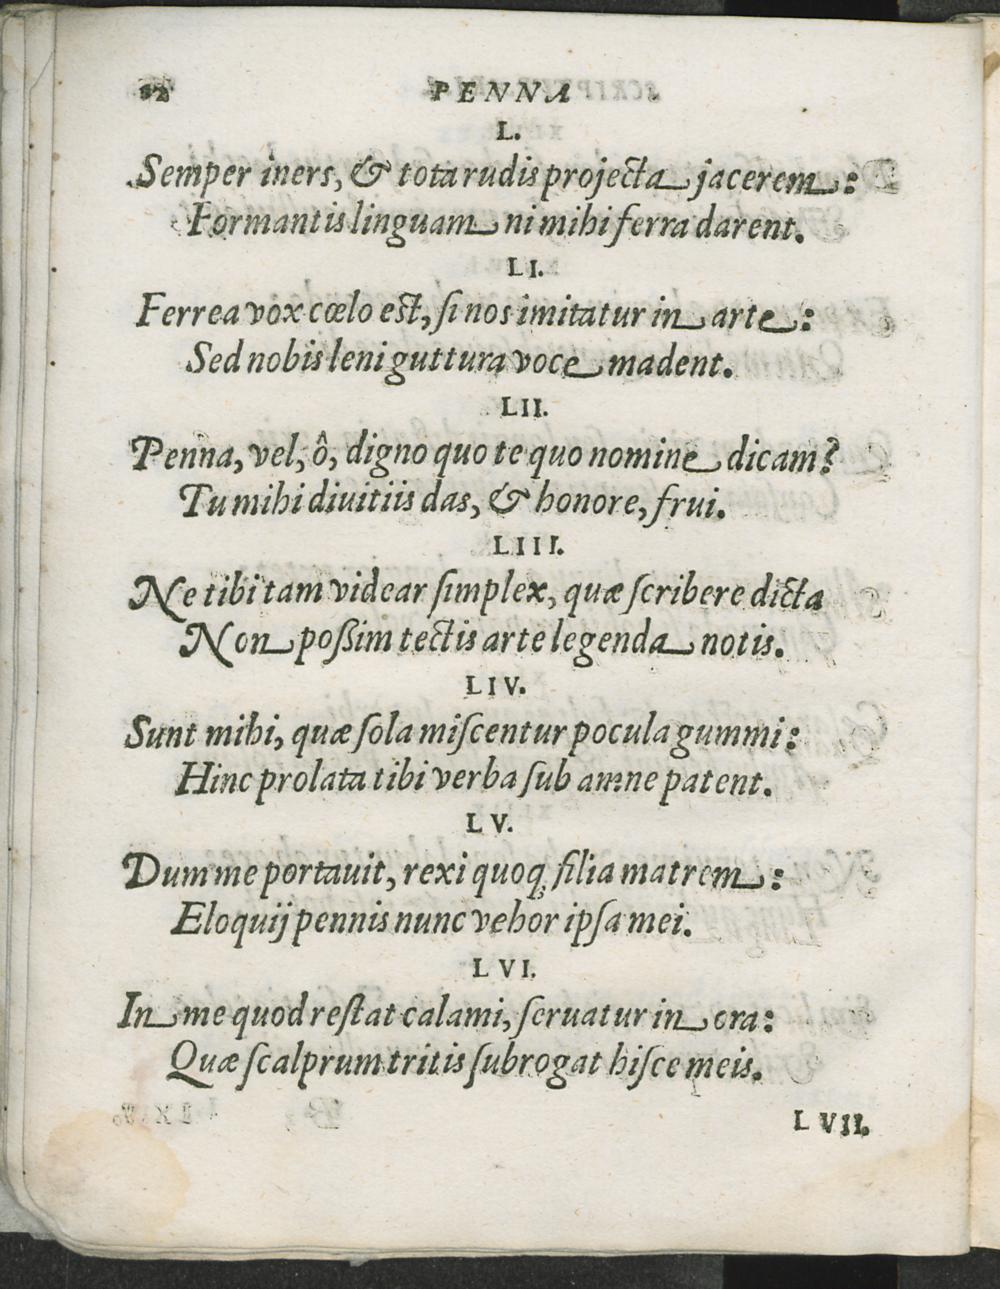 12 PENNA
L.
Semper iners, & tota rudis projecta jacerem:
Formantis linguam ni mihi ferra darent.
LI.
Ferrea vox cœlo est, ſi nos imitatur in arte:
Sed nobis leni guttura voce madent.
LII.
Penna, vel, ô, digno quo te quo nomine dicam?
Tu mihi diuitiis das, & honore, frui.
LIII.
Ne tibi tam videar ſimplex, quæ ſcribere dicta
Non poßim tectis arte legenda notis.
LIV.
Sunt mihi, quæ ſola miſcentur pocula gummi:
Hinc prolata tibi verba ſub amne patent.
LV.
Dum me portauit, rexi quoq; filia matrem:
Eloquij pennis nunc vehor ipſa mei.
LVI.
In me quod reſtat calami, ſeruatur in ora:
Quæ ſcalprum tritis ſubrogat hiſce meis.
LVII.